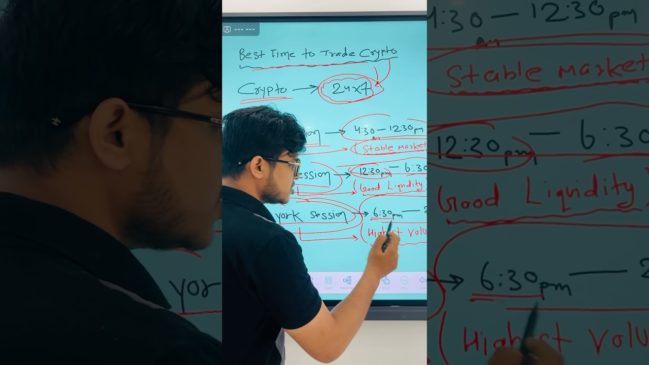 Best Time to Trade Crypto
Crypto → 24x7
on → 4:30 – 12:30pm
Stable market
ession → 12:30pm – 6:30
Good Liquidity
york session → 6:30pm –
Highest Volu
4:30 – 12:30pm
am
Stable market
12:30pm – 6:30
Good Liquidity
york
→ 6:30pm — 2
Highest Volu